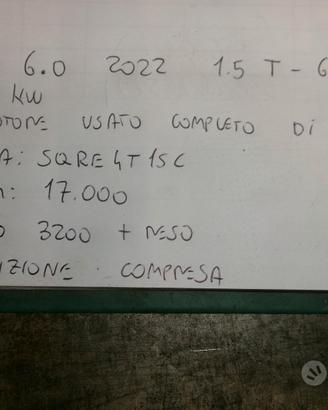 6.0 2022 1.5 T - 6
KW
OTORE USATO COMPLETO Di
A: SQRE4T15C
: 17.000
O 3200 + RESO
ZIONE COMPRESA